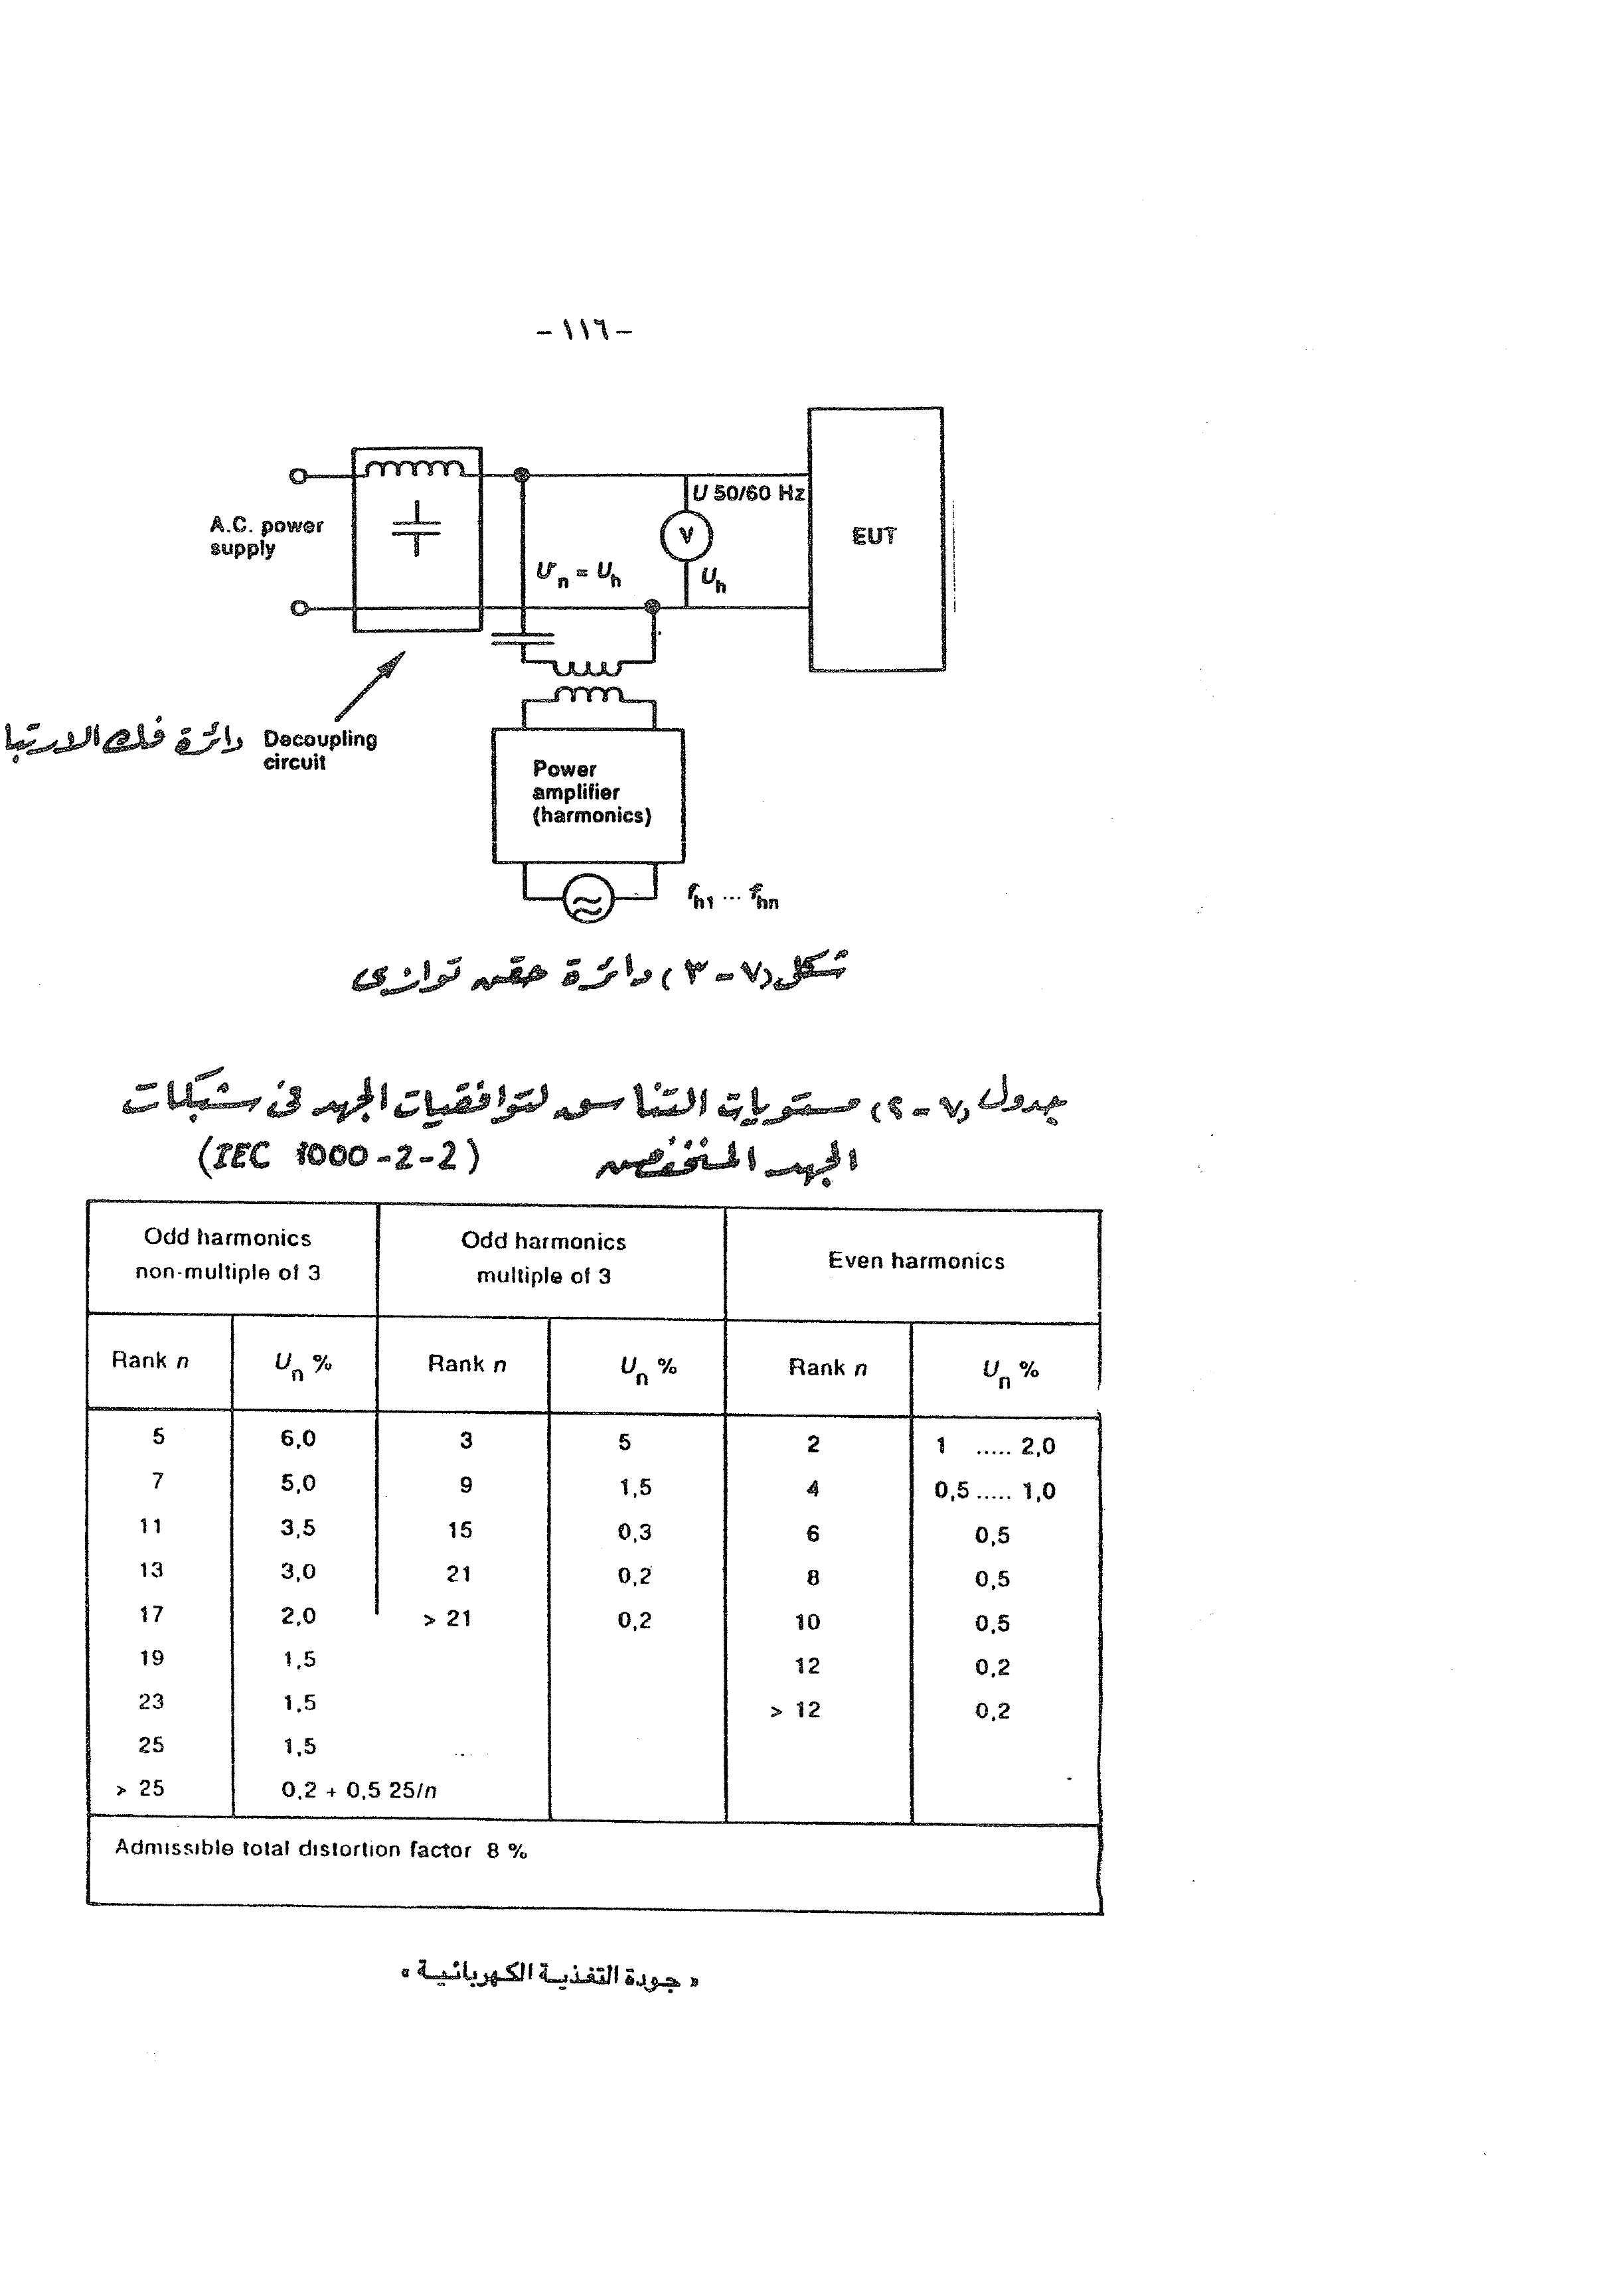 -١١٦-
U 50/60 Hz
A.C. power
supply
V
EUT
U'n = Uh
Uh
دائرة فك الارتبا
Decoupling
circuit
Power
amplifier
(harmonics)
fh1 ... fhn
شكل (٧-٣) دائرة حقن توازى
جدول (٧-٢) مستويات التناسق لتوافقيات الجهد فى شبكات
الجهد المنخفض (IEC 1000-2-2)
Odd harmonics
non-multiple of 3
Odd harmonics
multiple of 3
Even harmonics
Rank n Un % Rank n Un % Rank n Un %
5 6,0 3 5 2 1 ..... 2,0
7 5,0 9 1,5 4 0,5 ..... 1,0
11 3,5 15 0,3 6 0,5
13 3,0 21 0,2 8 0,5
17 2,0 > 21 0,2 10 0,5
19 1,5 12 0,2
23 1,5 > 12 0,2
25 1,5
> 25 0,2 + 0,5 25/n
Admissible total distortion factor 8 %
« جودة التغذية الكهربائية »